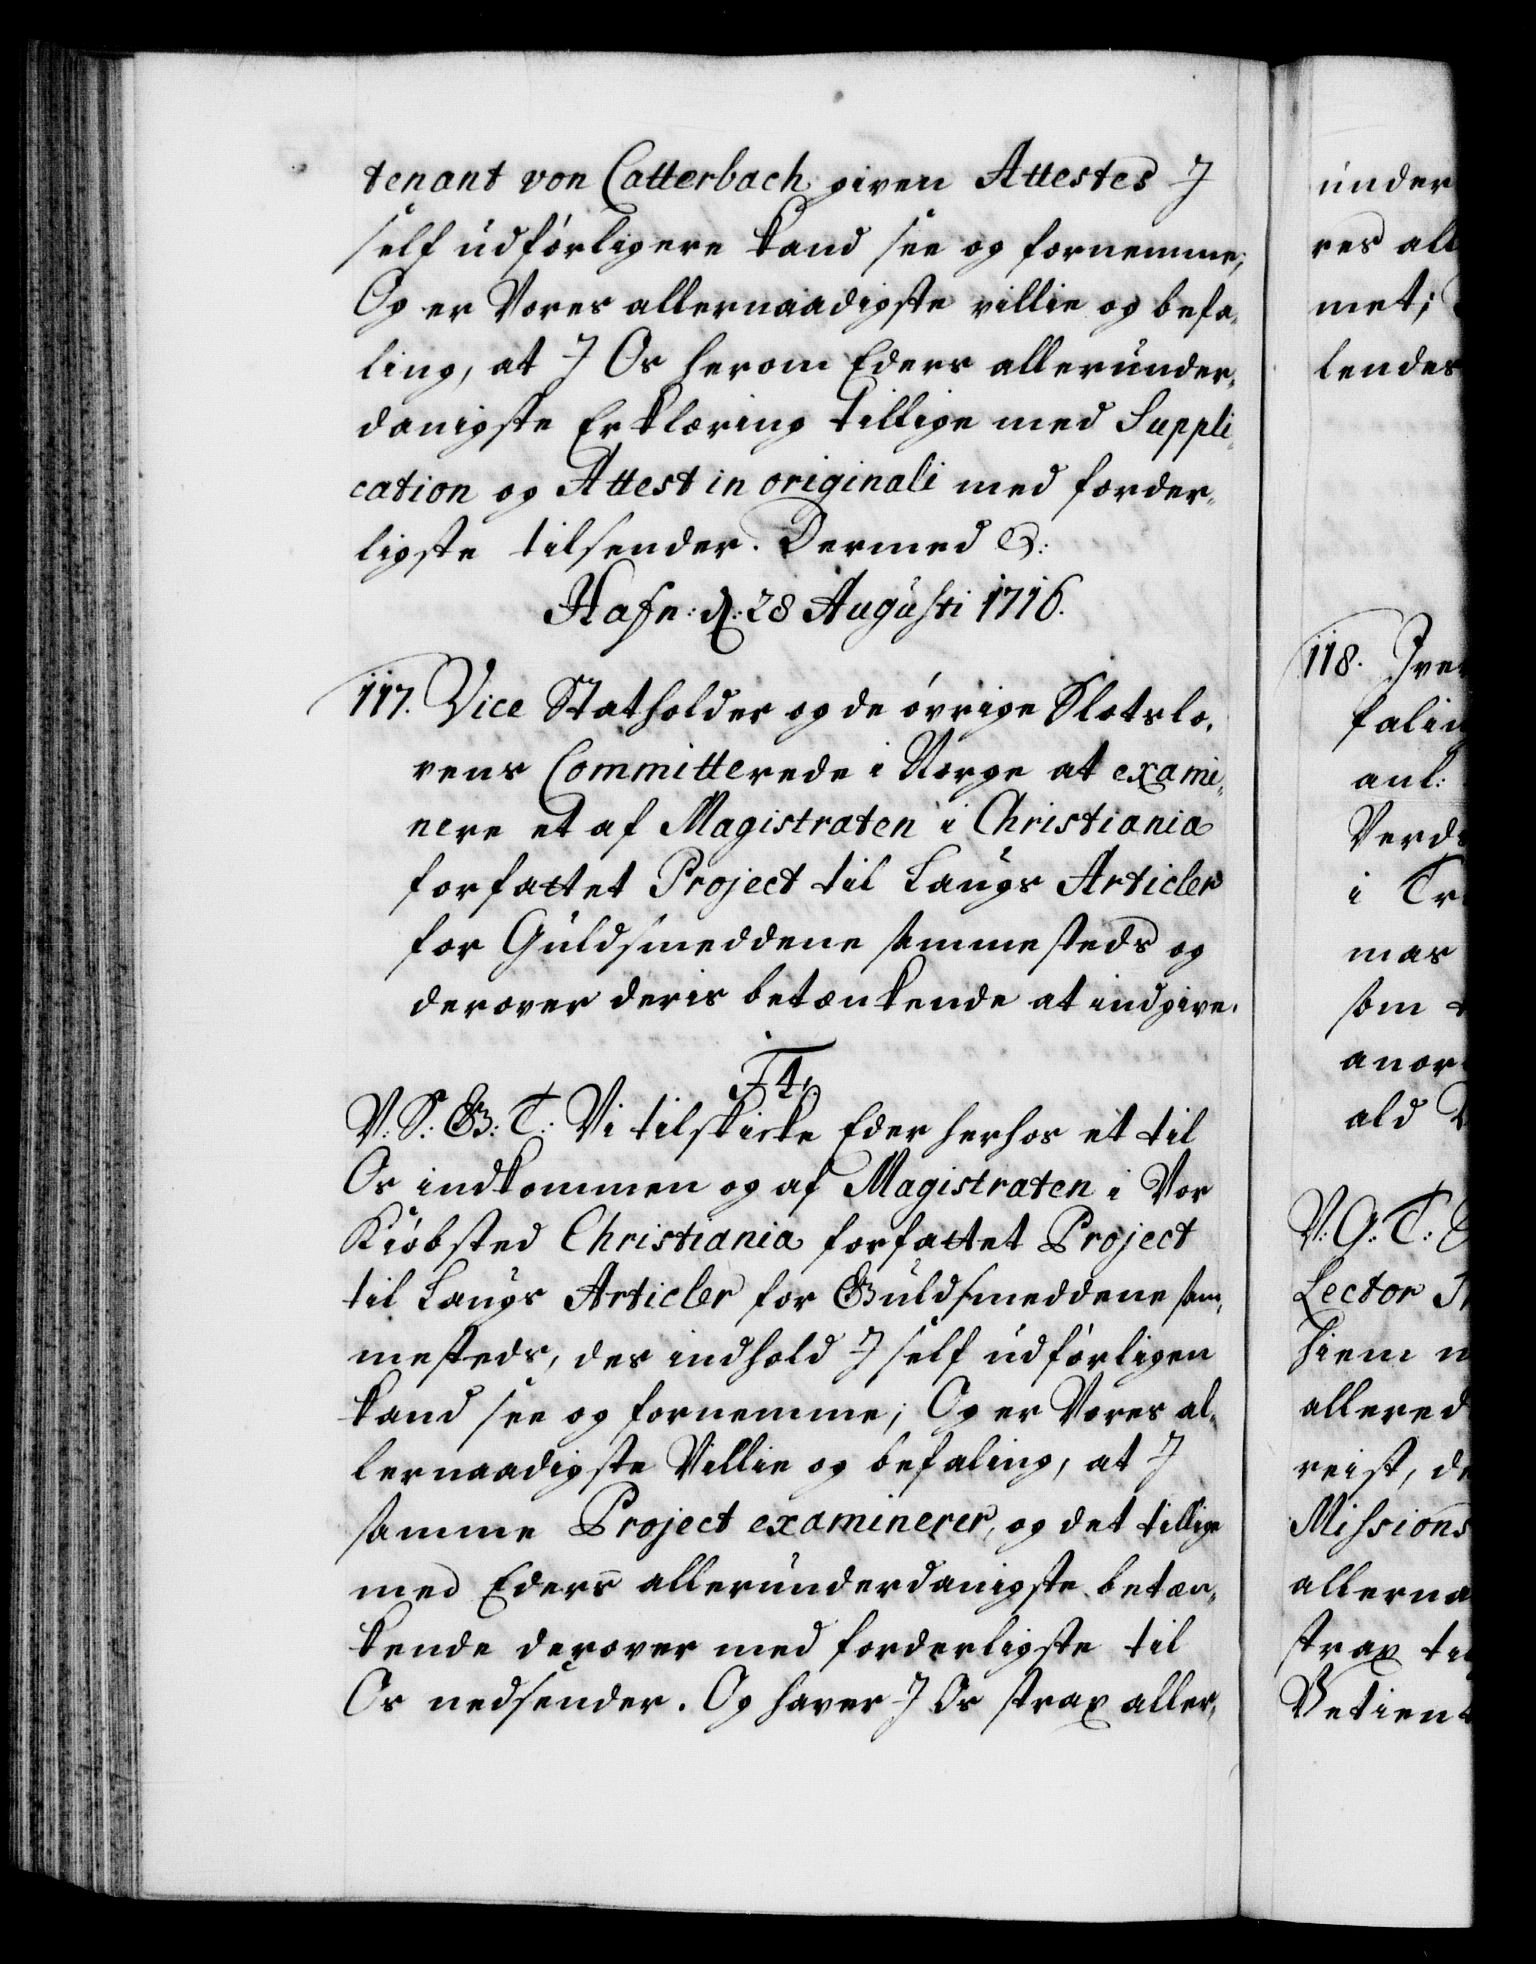 tenant von Catterbach given Attestes J
self udførligere kand see og fornemme;
Og er Vores allernaadigste villie og befa¬
ling, at J Os herom Eders allerunder¬
danigste Erklæring tillige med Suppli¬
cation og Attest in originali med forder¬
ligste tilsender. Dermed &:
Hafn: d: 28 Augusti 1716.
117. Vice Statholder og de øvrige Slotslo¬
vens Committerede i Norge at exami¬
nere et af Magistraten i Christiania
forfattet Project til Laugs Articler
for Guldsmeddene sammesteds og
derover deris betænkende at indgive.
F 4.
V: S: G: T: Vi tilskicke Eder herhos et til
Os indkommen og af Magistraten i Vor
Kiøbsted Christiania forfattet Project
til Laugs Articler for Guldsmeddene sam¬
mesteds, des indhold J self udførligen
kand see og fornemme; Og er Vores al¬
lernaadigste Villie og befaling, at J
samme Project examinerer, og det tillige
med Eders allerunderdanigste betæn¬
kende derover med forderligste til
Os nedsender. Og haver J Os strax aller¬
under
res all
met;
lendes
118. Iver
falin
anl:
Verds
i Tr
mas
som
anor
ald
V: G: T:
Lector
hiem
allered
reist, de
Missions
allerna
strax til
Betient